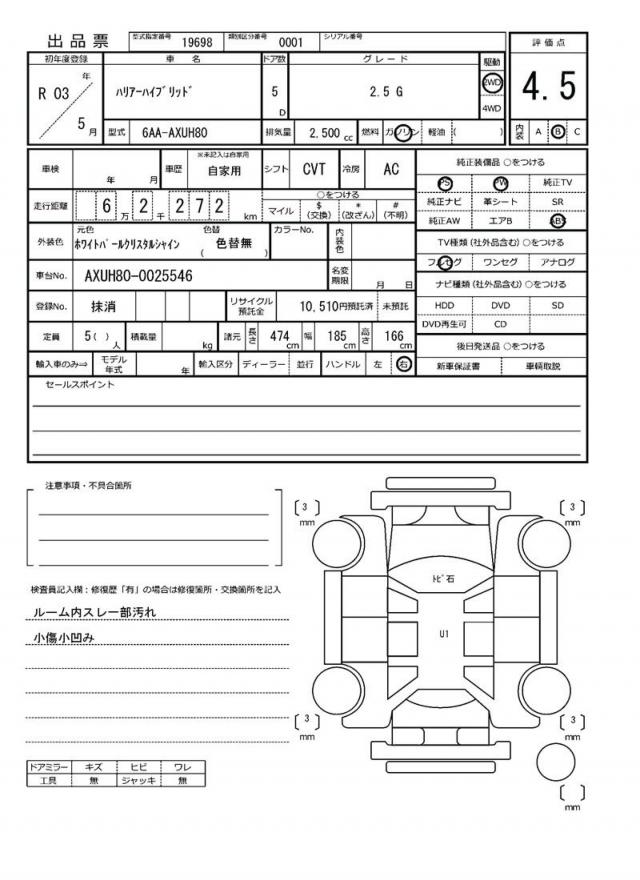 出品票 型式指定番号 19698 類別区分番号 0001 シリアル番号
評価点
4.5
内装 A B C
初年度登録 車名 ドア数 グレード 駆動
R 03 年 5 月 ハリアーハイブリッド 5 D 2.5 G 2WD
4WD
型式 6AA-AXUH80 排気量 2,500 cc 燃料 ガソリン 軽油 ( )
車検 年 月 車歴 ※未記入は自家用 自家用 シフト CVT 冷房 AC
走行距離 6 万 2 千 2 7 2 km ○をつける
マイル $ (交換) * (改ざん) # (不明)
外装色 元色 ホワイトパールクリスタルシャイン 色替 ( 色替無 ) カラーNo. 内装色
車台No. AXUH80-0025546 名変期限 月 日
登録No. 抹消 リサイクル預託金 10,510円預託済 未預託
定員 5( ) 人 積載量 kg 諸元 長さ 474 cm 幅 185 cm 高さ 166 cm
輸入車のみ⇒ モデル年式 年 輸入区分 ディーラー 並行 ハンドル 左 右
純正装備品 ○をつける
PS PW 純正TV
純正ナビ 革シート SR
純正AW エアB ABS
TV種類(社外品含む) ○をつける
フルセグ ワンセグ アナログ
ナビ種類(社外品含む) ○をつける
HDD DVD SD
DVD再生可 CD
後日発送品 ○をつける
新車保証書 車輌取説
セールスポイント
注意事項・不具合箇所
検査員記入欄:修復歴「有」の場合は修復箇所・交換箇所を記入
ルーム内スレ一部汚れ
小傷小凹み
ドアミラー キズ ヒビ ワレ
工具 無 ジャッキ 無
[ 3 ] mm
[ 3 ] mm
トビ石
U1
[ 3 ] mm
[ 3 ] mm
[ ] mm